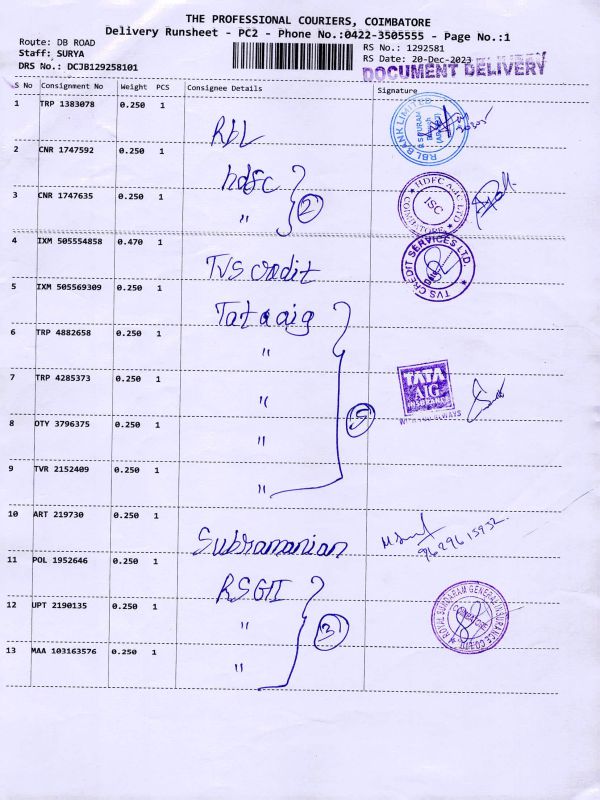 THE PROFESSIONAL COURIERS, COIMBATORE
Delivery Runsheet - PC2 - Phone No.:0422-3505555 - Page No.:1
Route: DB ROAD
RS No.: 1292581
Staff: SURYA
RS Date: 20-Dec-2023
DRS No.: DCJB129258101
DOCUMENT DELIVERY
S No Consignment No Weight PCS Consignee Details Signature
1 TRP 1383078 0.250 1
Rbl
RBL BANK LIMITED
2 CNR 1747592 0.250 1
hdfc
3 CNR 1747635 0.250 1
" 2
ISC
4 IXM 505554858 0.470 1
TVS credit
TVS CREDIT SERVICES LTD.
5 IXM 505569309 0.250 1
Tata aig
6 TRP 4882658 0.250 1
"
7 TRP 4285373 0.250 1
"
TATA
AIG
INSURANCE
WITH YOU ALWAYS
8 OTY 3796375 0.250 1
" 5
9 TVR 2152409 0.250 1
"
10 ART 219730 0.250 1
Subramanian
11 POL 1952646 0.250 1
RSGII
12 UPT 2190135 0.250 1
" 3
ROYAL SUNDARAM GENERAL INSURANCE CO
COIMBATORE
13 MAA 103163576 0.250 1
"